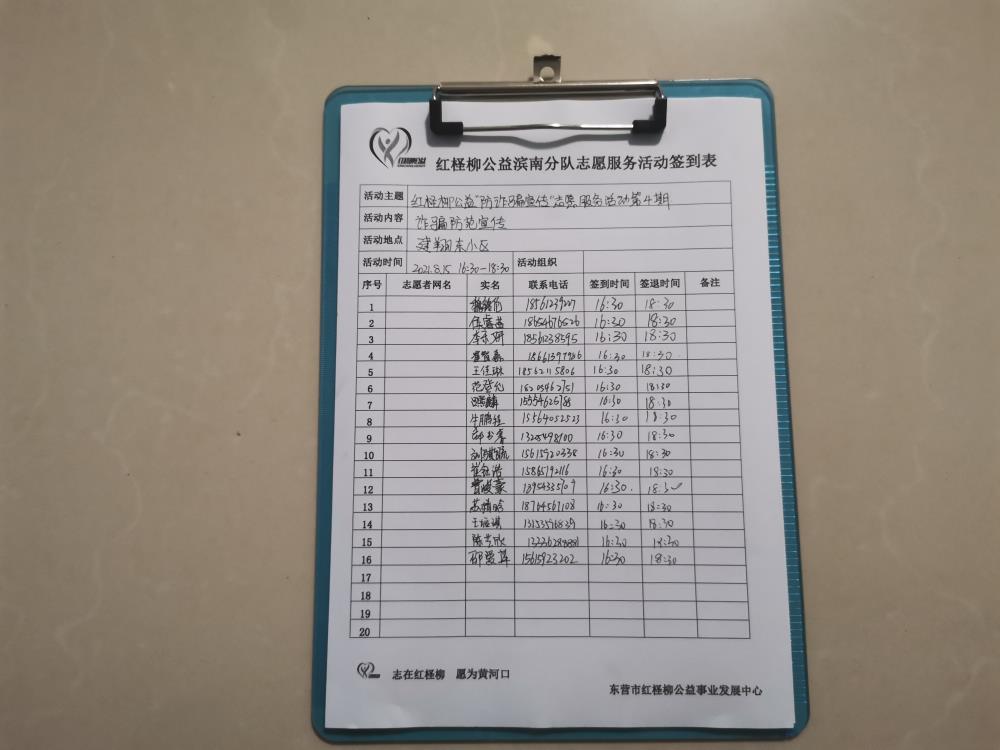 红柽柳公益滨南分队志愿服务活动签到表
活动主题 红柽柳公益"防诈骗宣传"志愿服务活动第4期
活动内容 诈骗防范宣传
活动地点 建翔东小区
活动时间 2021.8.15 16:30-18:30 活动组织
序号 志愿者网名 实名 联系电话 签到时间 签退时间 备注
1 18561239227 16:30 18:30
2 18654676526 16:30 18:30
3 18561238595 16:30 18:30
4 16:30 18:30
5 王佳琳 18562115806 16:30 18:30
6 范登允 18205462751 16:30 18:30
7 16:30 18:30
8 15564052523 16:30 18:30
9 16:30 18:30
10 15615920338 16:30 18:30
11 16:30 18:30
12 16:30
13 18764567108 16:30 18:30
14 16:30 18:30
15 16:30 18:30
16 15615923202 16:30 18:30
17
18
19
20
志在红柽柳 愿为黄河口
东营市红柽柳公益事业发展中心